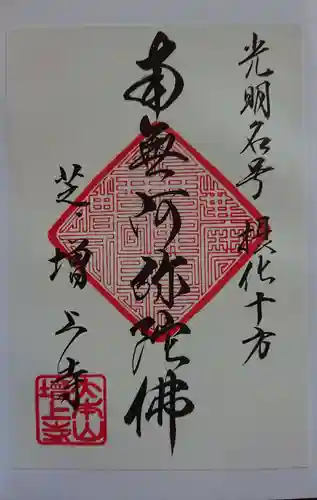 光明名号摂化十方
南無阿弥陀佛
芝・増上寺
大本山
増上寺